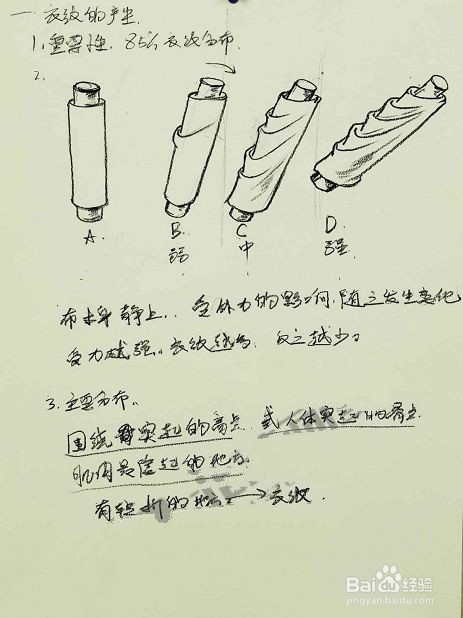 一 衣纹的产生
1. 重要性. 85% 衣纹分布.
2.
A. B. C D.
弱 中 强
布本身静止.. 受外力的影响.随之发生变化
受力越强.衣纹越多. 反之越少。
3. 主要分布..
围绕着突起的高点. 或人体突起的高点
肌肉是隆起的地方.
有转折的地方→衣纹.
Baidu经验
jingyan.baidu.com